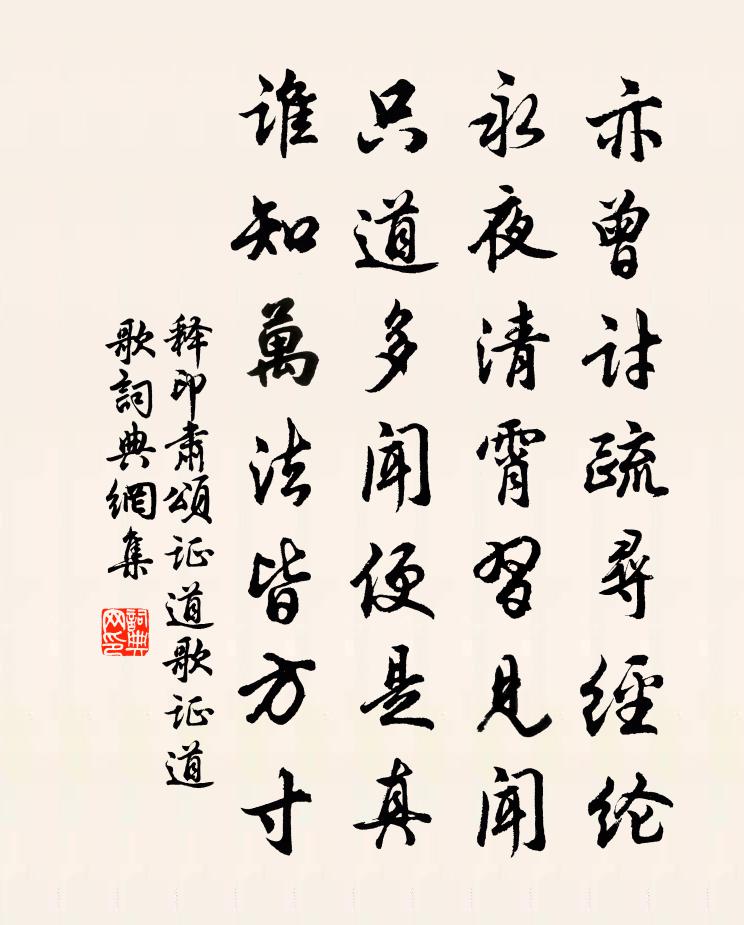 亦曾讨疏尋經纶
永夜清霄習見闻
只道多闻便是真
谁知萬法皆方寸
释印肃頌证道歌证道
歌詞典網集
詞典
网印